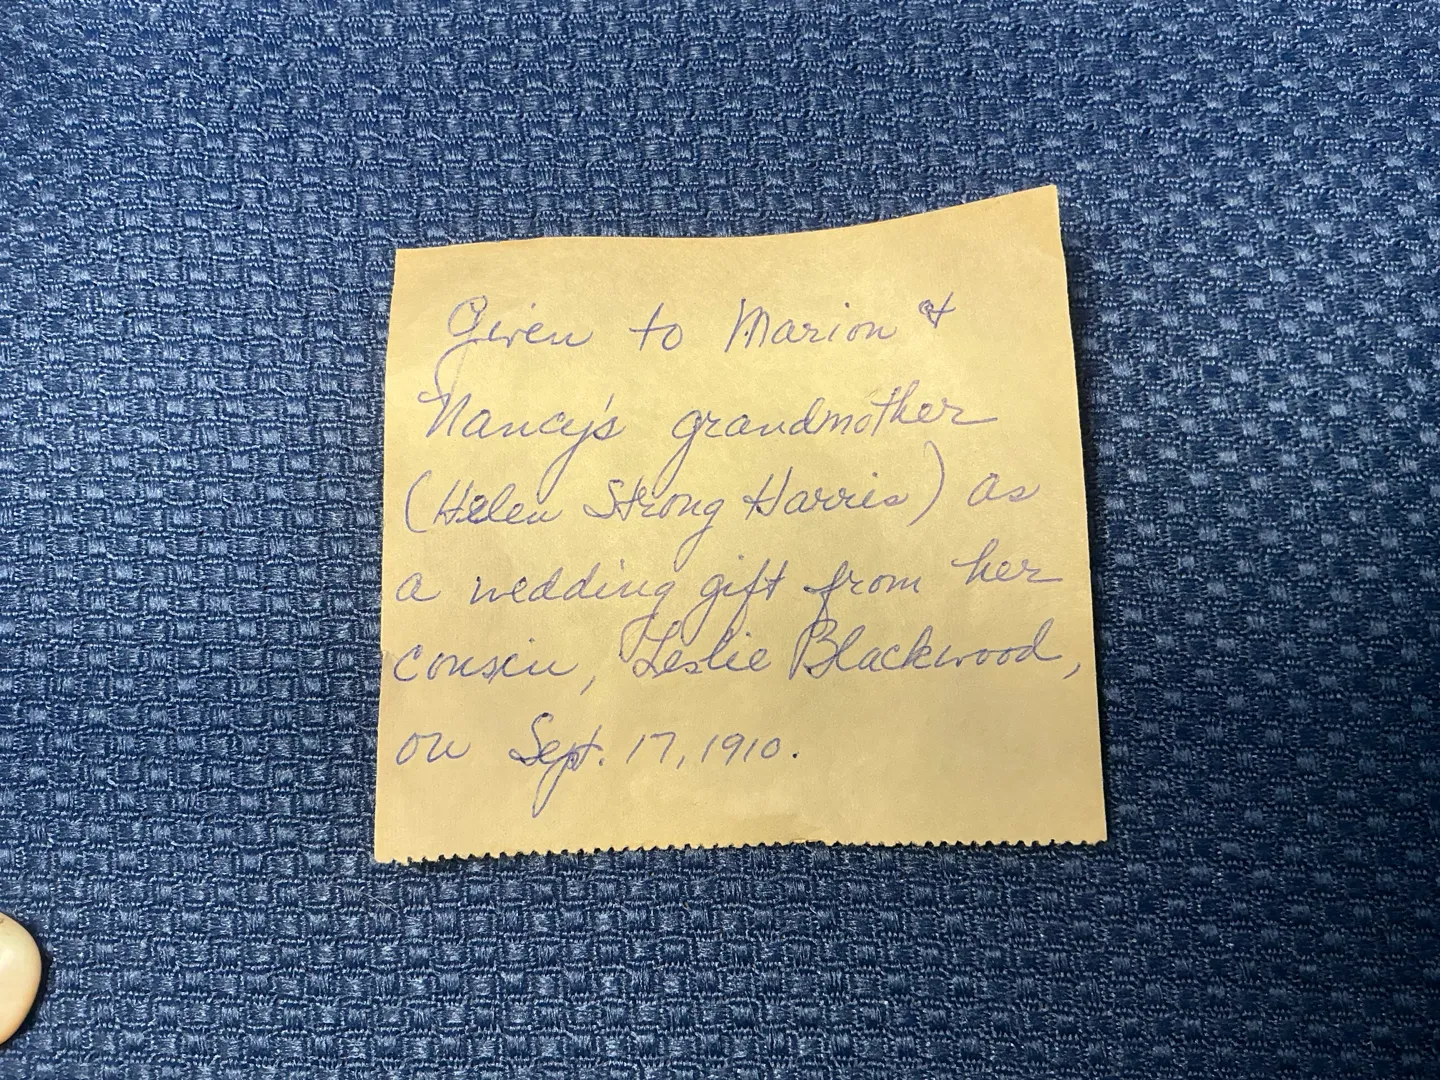 Given to Marion &
Nancy's grandmother
(Helen Strong Harris) as
a wedding gift from her
cousin, Leslie Blackwood,
on Sept. 17, 1910.